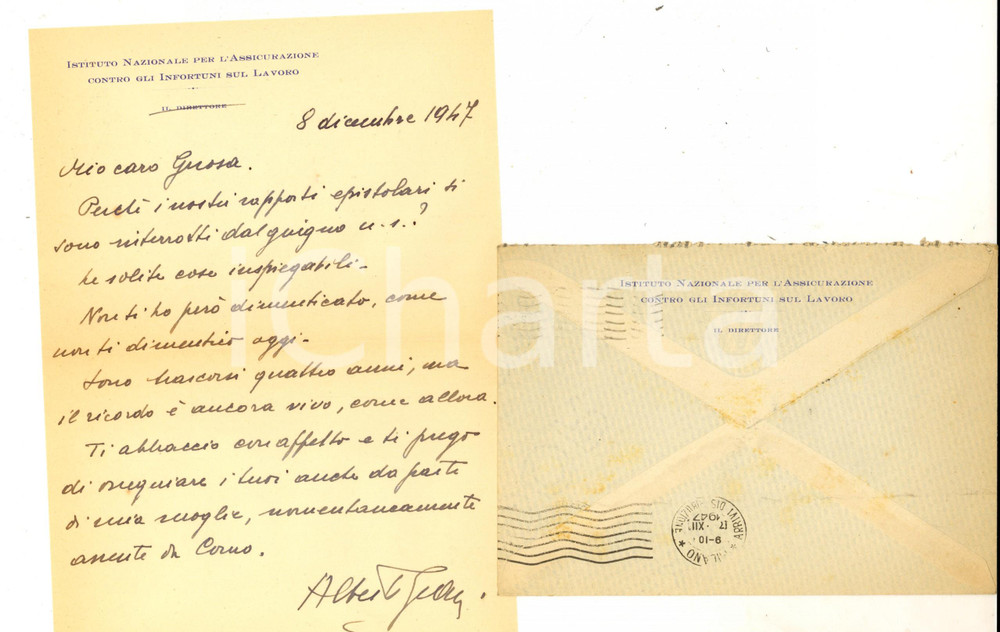 Istituto Nazionale per l'Assicurazione
contro gli Infortuni sul Lavoro
IL DIRETTORE
8 dicembre 1947
Mio caro Grossa.
Perchè i nostri rapporti epistolari si
sono interrotti dal giugno u.s.?
Le solite cose inspiegabili.
Non ti ho però dimenticato, come
non ti dimentico oggi.
Sono trascorsi quattro anni, ma
il ricordo è ancora vivo, come allora.
Ti abbraccio con affetto e ti prego
di ossequiare i tuoi anche da parte
di mia moglie, momentaneamente
assente da Como.
Istituto Nazionale per l'Assicurazione
contro gli Infortuni sul Lavoro
IL DIRETTORE
MILANO
ARRIVI DISTRIBUZIONE
9-10
XII
1947
iCharta